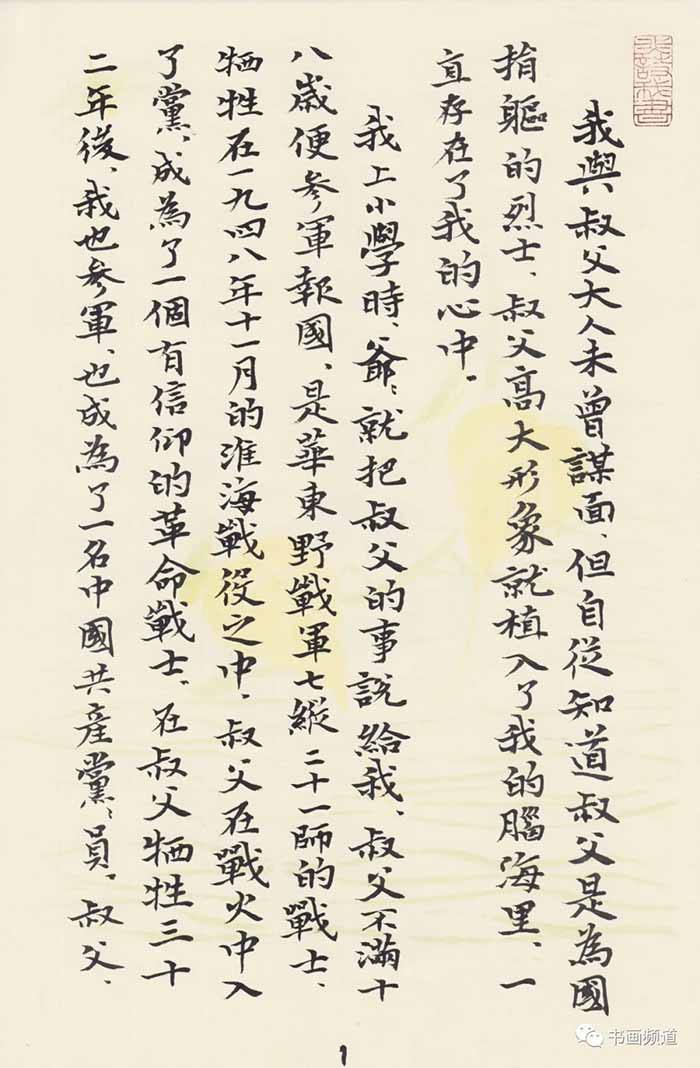 我與叔父大人未曾謀面、但自從知道叔父是為國
捐軀的烈士、叔父高大形象就植入了我的腦海里、一
直存在了我的心中。
我上小學時、爺〻就把叔父的事說給我、叔父不滿十
八歲便參軍報國、是華東野戰軍七縱二十一師的戰士、
犧牲在一九四八年十一月的淮海戰役之中、叔父在戰火中入
了黨、成為了一個有信仰的革命戰士、在叔父犧牲三十
二年後、我也參軍、也成為了一名中國共產黨〻員、叔父、
1
书画频道